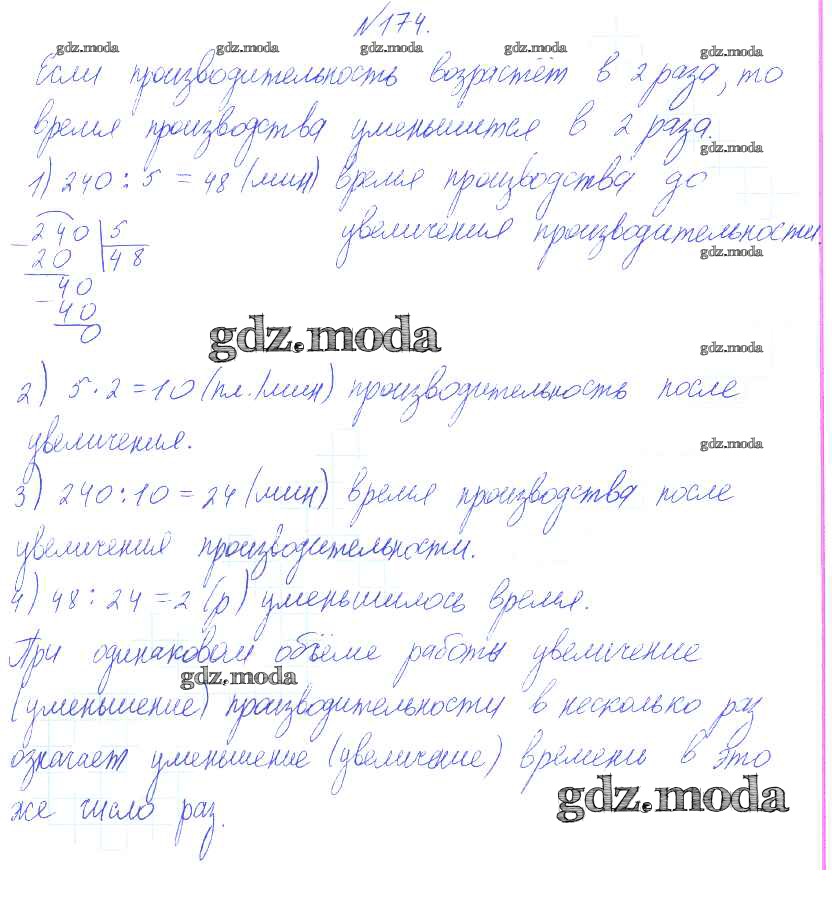 №174.
gdz.moda gdz.moda gdz.moda gdz.moda gdz.moda
Если производительность возрастёт в 2 раза, то
время производства уменьшится в 2 раза.
gdz.moda
1) 240 : 5 = 48 (мин) время производства до
увеличения производительности.
gdz.moda
240 | 5
20 | 48
40
40
0
gdz.moda
gdz.moda
2) 5 · 2 = 10 (пл./мин) производительность после
увеличения.
gdz.moda
3) 240 : 10 = 24 (мин) время производства после
увеличения производительности.
4) 48 : 24 = 2 (р) уменьшилось время.
При одинаковом объёме работы увеличение
gdz.moda
(уменьшение) производительности в несколько раз
означает уменьшение (увеличение) времени в это
gdz.moda
же число раз.